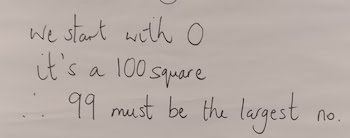 we start with 0
it's a 100 square
∴ 99 must be the largest no.